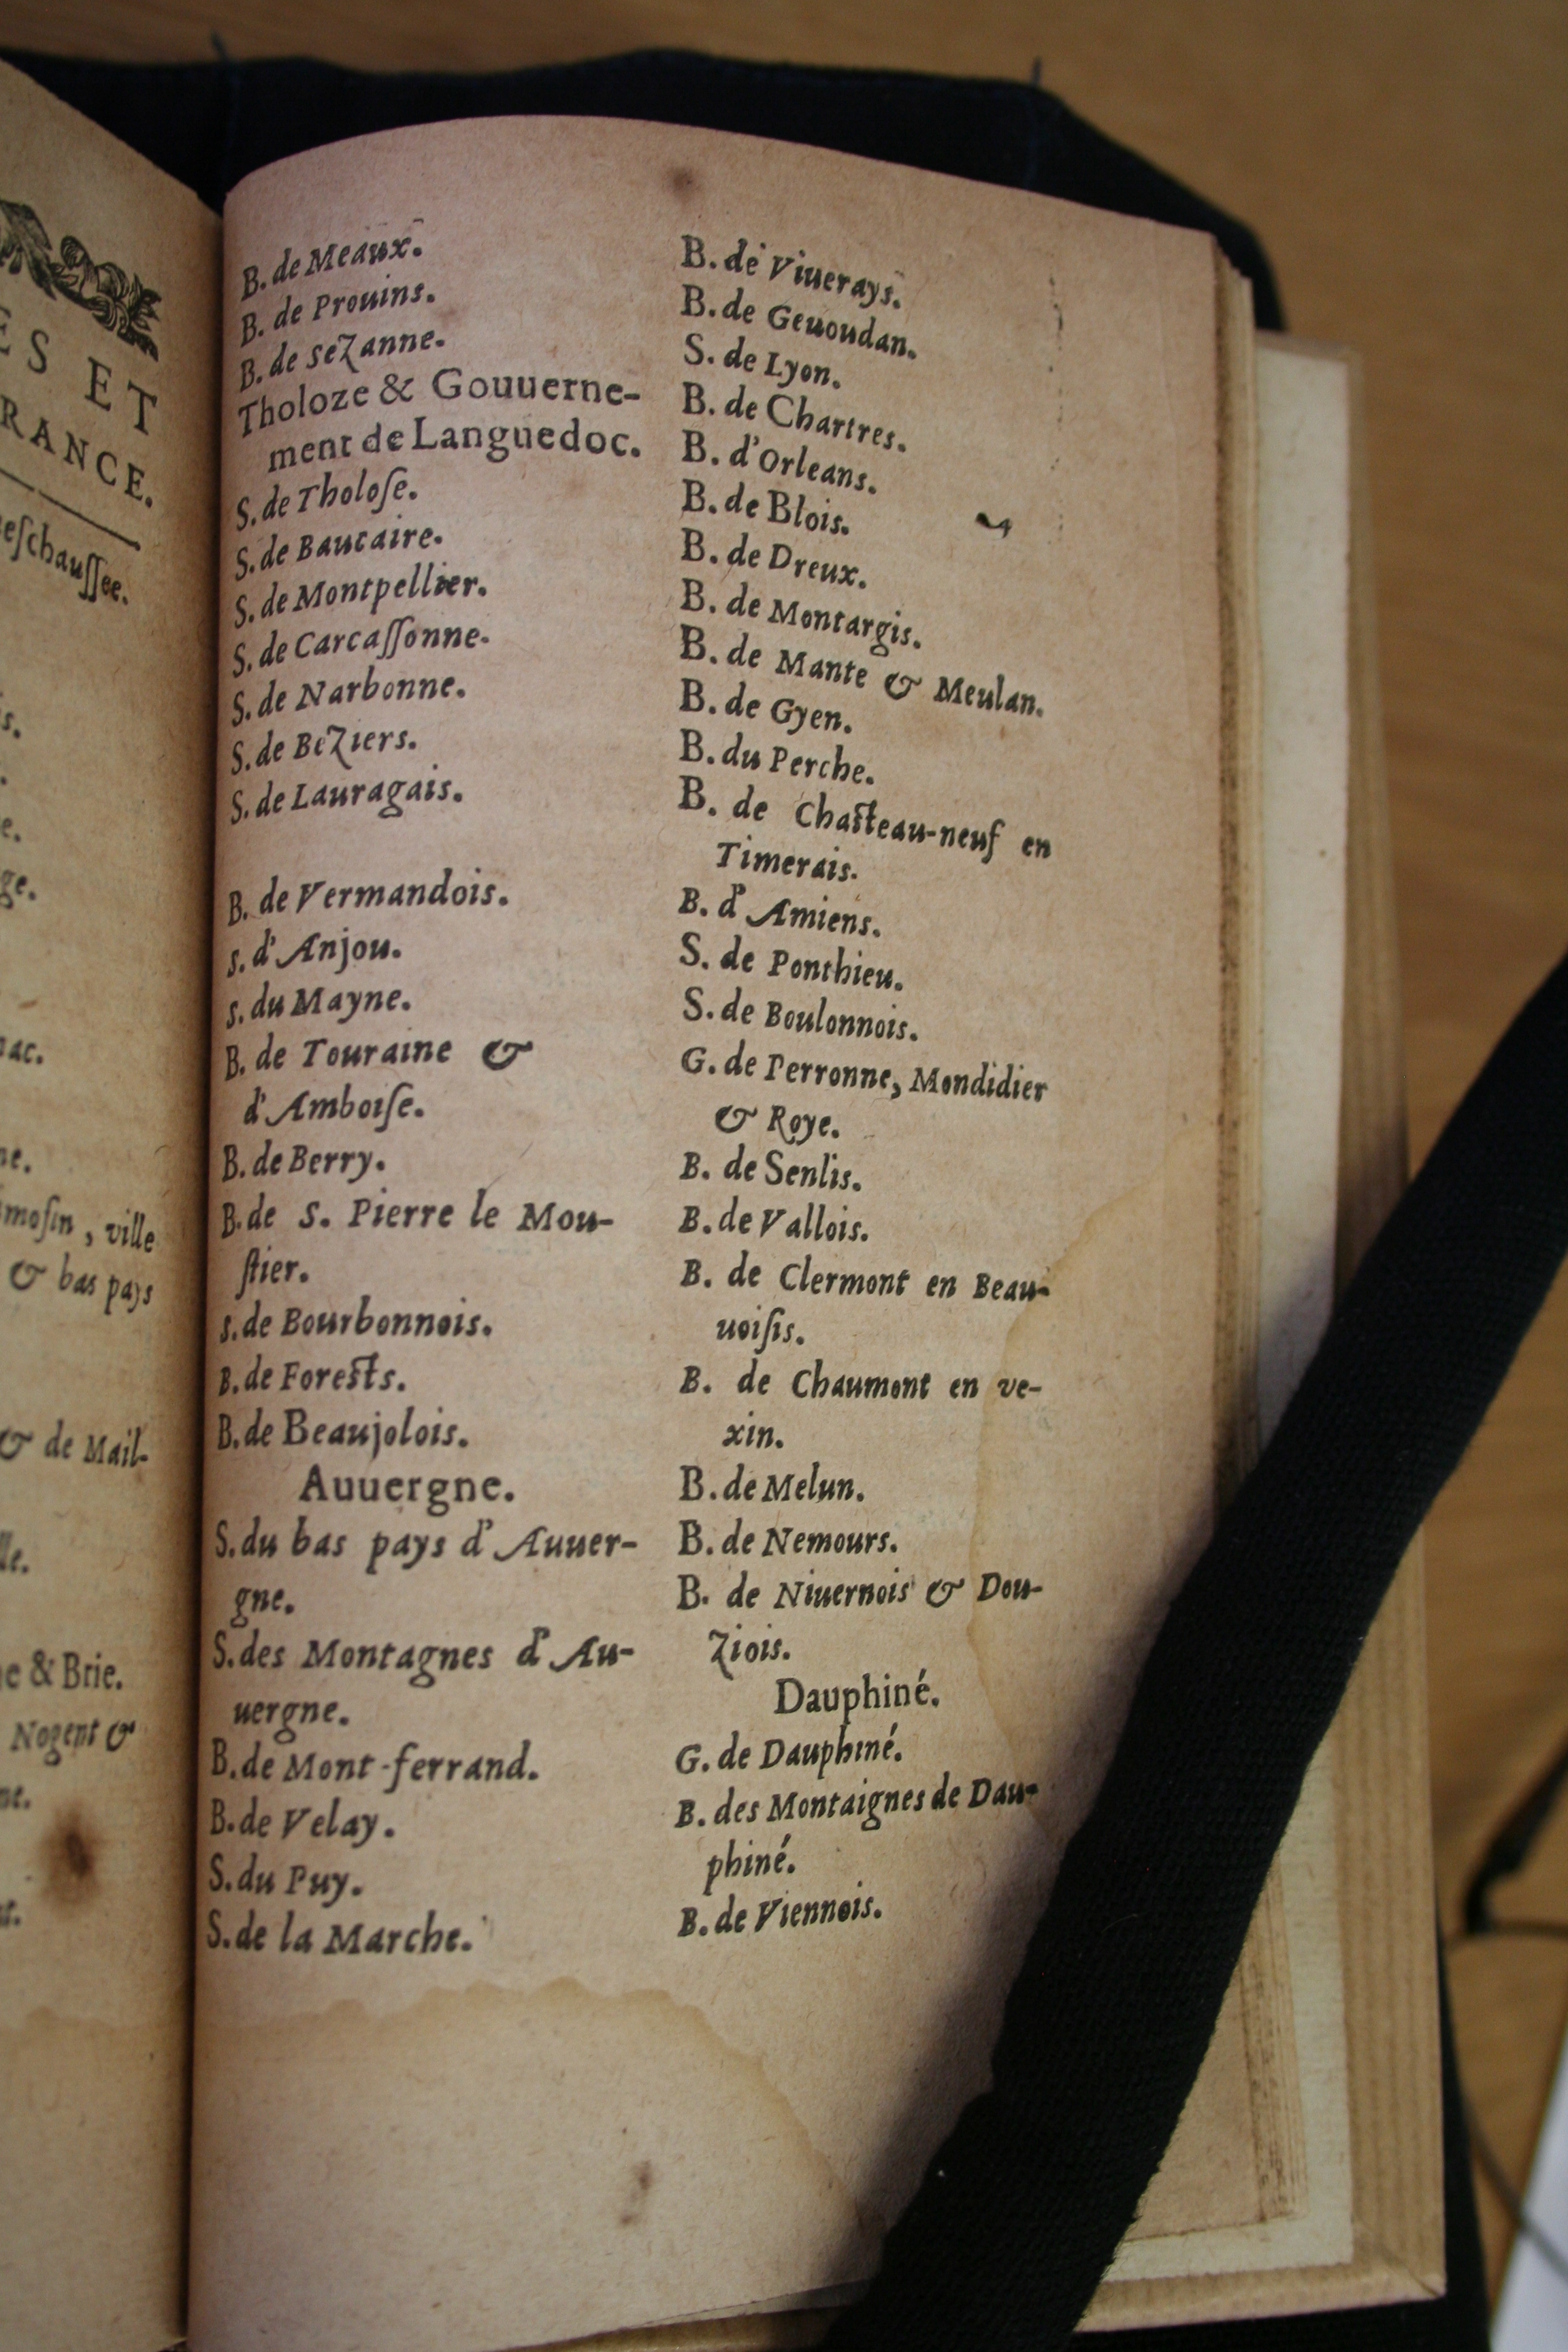 ES ET
RANCE.
eſchauſſee.
s.
e.
ge.
nac.
ne.
moſin, ville
& bas pays
& de Mail-
lle.
ne & Brie.
Nogent &
ne.
B. de Meaux.
B. de Prouins.
B. de seZanne.
Tholoze & Gouuerne-
ment de Languedoc.
S. de Tholoſe.
S. de Baucaire.
S. de Montpellier.
S. de Carcaſſonne.
S. de Narbonne.
S. de BeZiers.
S. de Lauragais.
B. de Vermandois.
s. d'Anjou.
s. du Mayne.
B. de Touraine &
d'Amboiſe.
B. de Berry.
B. de S. Pierre le Mou-
ſtier.
s. de Bourbonnois.
B. de Foreſts.
B. de Beaujolois.
Auuergne.
S. du bas pays d'Auuer-
gne.
S. des Montagnes d'Au-
uergne.
B. de Mont-ferrand.
B. de Velay.
S. du Puy.
S. de la Marche.
B. de Viuerays.
B. de Geuoudan.
S. de Lyon.
B. de Chartres.
B. d'Orleans.
B. de Blois.
B. de Dreux.
B. de Montargis.
B. de Mante & Meulan.
B. de Gyen.
B. du Perche.
B. de Chaſteau-neuf en
Timerais.
B. d'Amiens.
S. de Ponthieu.
S. de Boulonnois.
G. de Perronne, Mondidier
& Roye.
B. de Senlis.
B. de Vallois.
B. de Clermont en Beau-
uoiſis.
B. de Chaumont en ve-
xin.
B. de Melun.
B. de Nemours.
B. de Niuernois & Dou-
Ziois.
Dauphiné.
G. de Dauphiné.
B. des Montaignes de Dau-
phiné.
B. de Viennois.